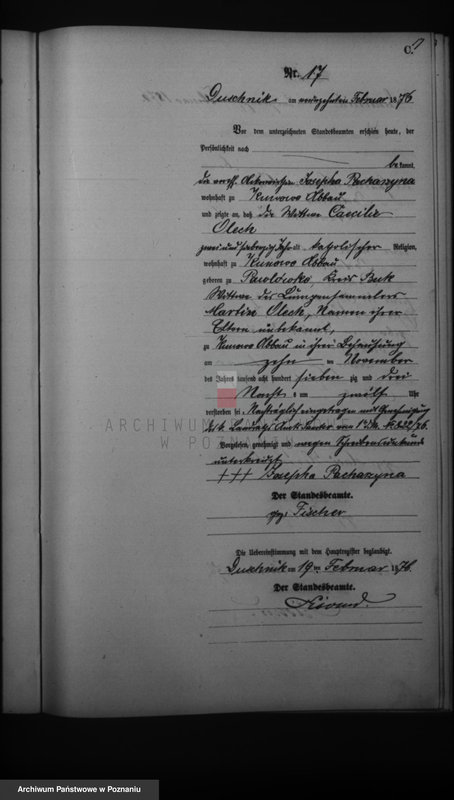 C.
Nr. 17
Duschnik am vierzehnten Februar 1876
Vor dem unterzeichneten Standesbeamten erschien heute, der
Persönlichkeit nach
be kannt,
die Josepha Pachazyna
wohnhaft zu Kunowo Abbau
und zeigte an, daß die Wittwe Caecilie
Olech
zwei und siebenzig Jahr alt katholischer Religion,
wohnhaft zu Kunowo Abbau
geboren zu Kreis Buk
Wittwe des
Martin Olech, Namen ihrer
Eltern unbekannt,
zu Kunowo Abbau in ihrer Behausung
am zehn ten November
des Jahres tausend acht hundert sieben zig und drei
Nachts um zwölf Uhr
verstorben sei. Nachträglich eingetragen mit Genehmigung
Vorgelesen, genehmigt und wegen Schreibensunkunde
unterkreuzt
+++ Josepha Pachazyna
Der Standesbeamte.
gez. Fischer
Die Uebereinstimmung mit dem Hauptregister beglaubigt.
Duschnik am 19 ten Februar 1876.
Der Standesbeamte.
ARCHIWUM
W POZNANIU
Archiwum Państwowe w Poznaniu